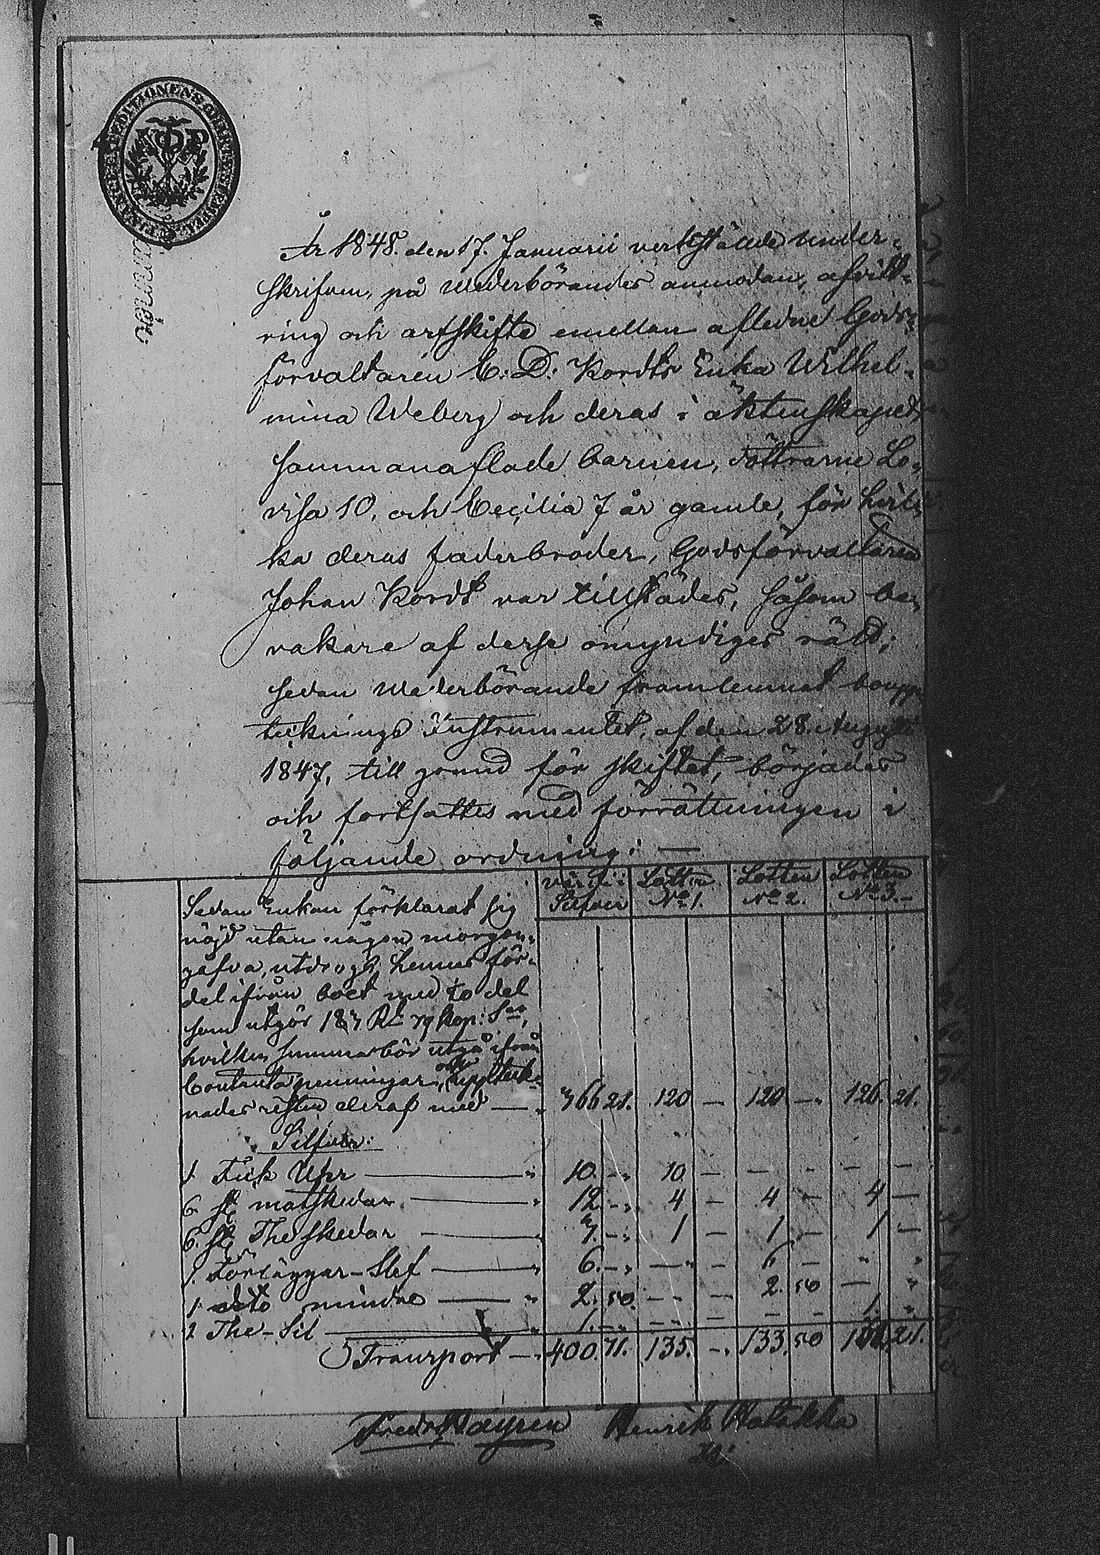 År 1848. den 17. Januarii verkstälde under-
skrifven, på wederbörandes anmodan, afvitt-
ring och arfskifte emellan afledne Gods-
förvaltaren C: D: Kordts Enka Wilhel-
mina Weberg och deras i äktenskapet
sammanaflade barnen, döttrarne Lo-
visa 10, och Cecilia 7 år gamle, för hvil-
ka deras faderbroder, Godsförvaltaren
Johan Kordt var tillstädes, såsom be-
vakare af derse omyndiges rätt;
sedan wederbörande framlemnat boupp-
tecknings Instrumentet, af den 28. Augusti
1847, till grund för skiftet, börjades
och fortsattes med förrättningen i
följande ordning: —
Värde i Silfver Lotten No 1. Lotten No 2. Lotten No 3.
Sedan Enkan förklarat sig
nöjd utan någon morgon-
gåfva, utdrogs hennes för-
del ifrån boet med 1/20 del
som utgör R:l kop: S:r,
hvilken summa bör utgå ifrån
Contanta penningar, och uppteck-
nades resten deraf med — 366 21. 120 — 120 — 126. 21.
Silfver:
1. Fick Uhr — 10. — 10 — — — — —
6 st matskedar — 12 — 4 — 4 — 4 —
6. st Theskedar — 3. — 1 — 1 — 1 —
1. Förläggar-Slef — 6. — — — 6 —
1. dito mindre — 2. 50. — — 2. 50 —
1. The-Sil — 1. — — — — — 1.
Transport — 400. 71. 135. — 133. 50 132. 21.
Henrik Hatakka